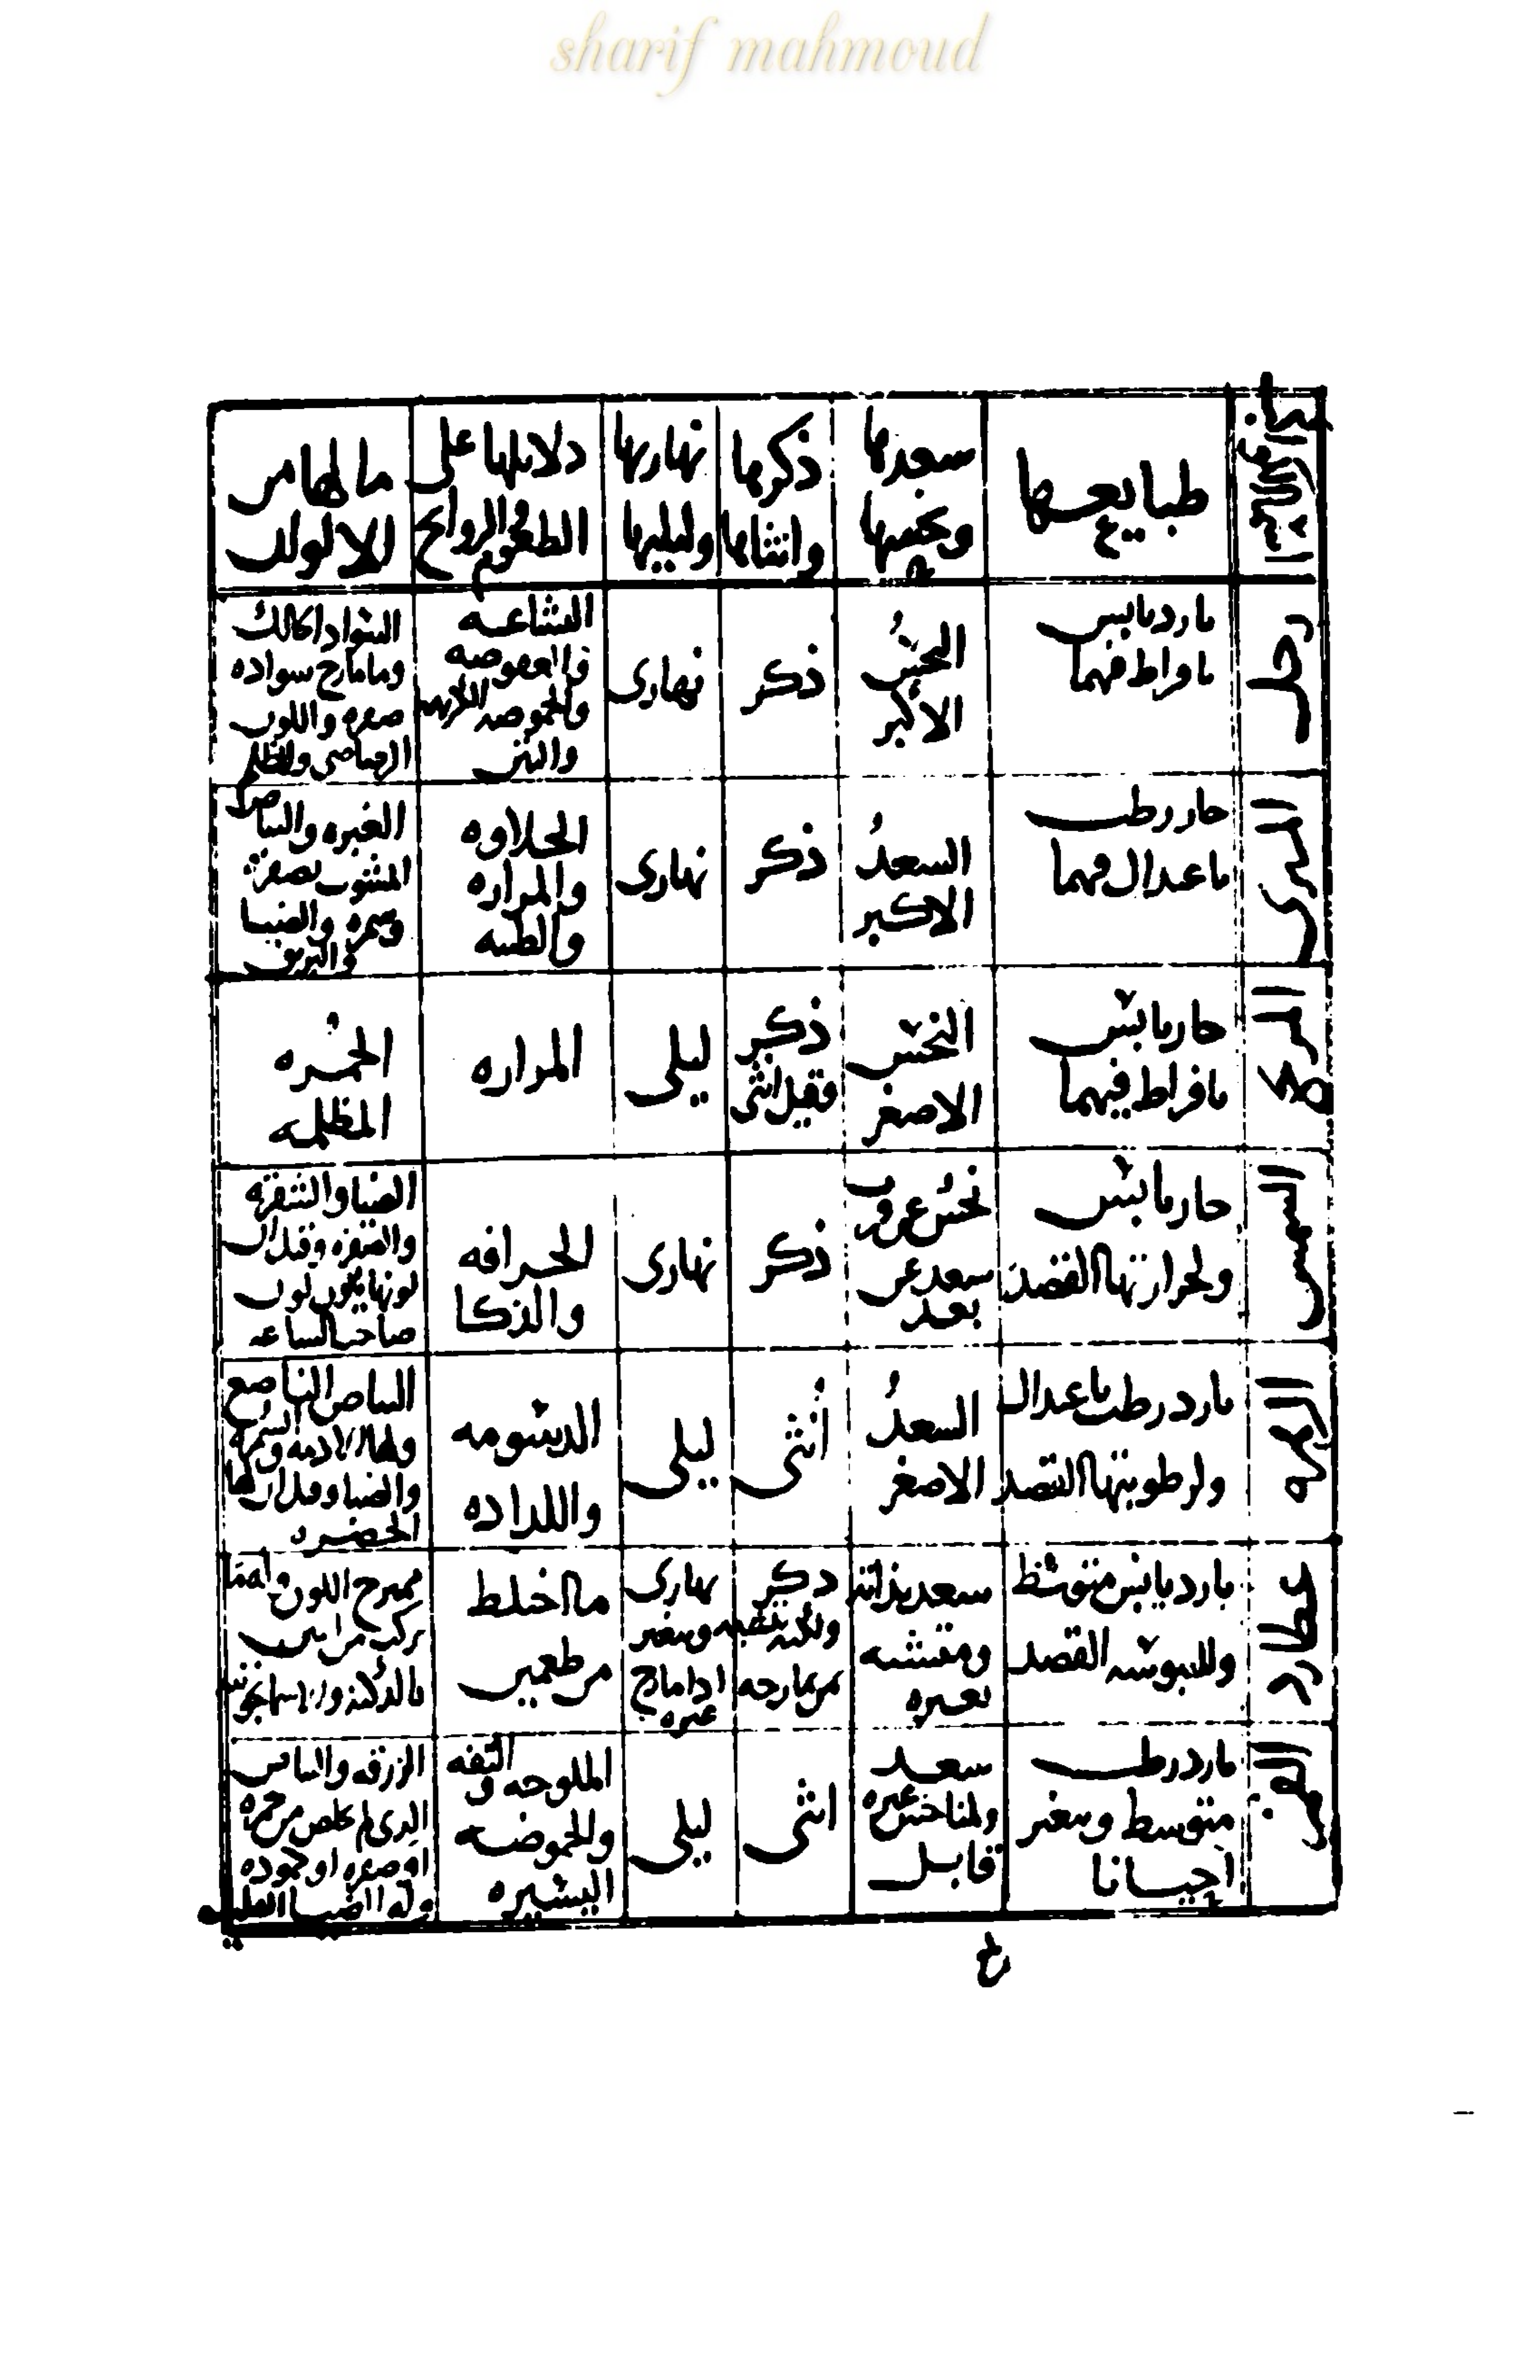 sharif mahmoud
طبايعها
سعدها
ونحسها
ذكرها
وانثاها
نهاريها
وليليها
دلايلها على
الطعوم والروايح
ما لها من
الالوان
زحل
بارد يابس
بافراط فيهما
النحس
الاكبر
ذكر
نهاري
البشاعه
والعفوصه
والحموضه الكريهه
والنتن
السواد الحالك
وما مازج سواده
صفره واللون
الرصاصي والظلم
المشتري
حار رطب
باعتدال فيهما
السعد
الاكبر
ذكر
نهاري
الحلاوه
والمراره
والطيبه
الغبره والبياض
المشوب بصفره
وسمره والضيا
والبريق
المريخ
حار يابس
بافراط فيهما
النحس
الاصغر
ذكر
وقيل انثى
ليلي
المراره
الحمره
المظلمه
الشمس
حار يابس
ولحرارتها القصد
نحس عن قرب
سعد عن
بعد
ذكر
نهاري
الحرافه
والذكا
الضيا والشقره
والصفره وقيل ان
لونها يكون لون
صاحب الساعه
الزهره
بارد رطب باعتدال
ولرطوبتها القصد
السعد
الاصغر
انثى
ليلي
الدسومه
واللذاذه
البياض الناصع
ولها الادمه والسمره
والضيا وقيل ان لها
الخضره
عطارد
بارد يابس متوسط
ولليبوسه القصد
سعد بذاته
ومنتسبه
بغيره
ذكر
ولكنه يتشبه
بمن يمازجه
نهاري
ويتغير
اذا مازج
غيره
ما اختلط
من طعمين
ممتزج اللون وله ما
تركب من اثنين
القمر
بارد رطب
متوسط ويتغير
احيانا
سعد
ولمناحس غيره
قابل
انثى
ليلي
الملوحه والتفه
والحموضه
اليسيره
الزرقه والبياض
الذي لم يخلص من حمره
او صفره او كموده
وله الضيا القليل